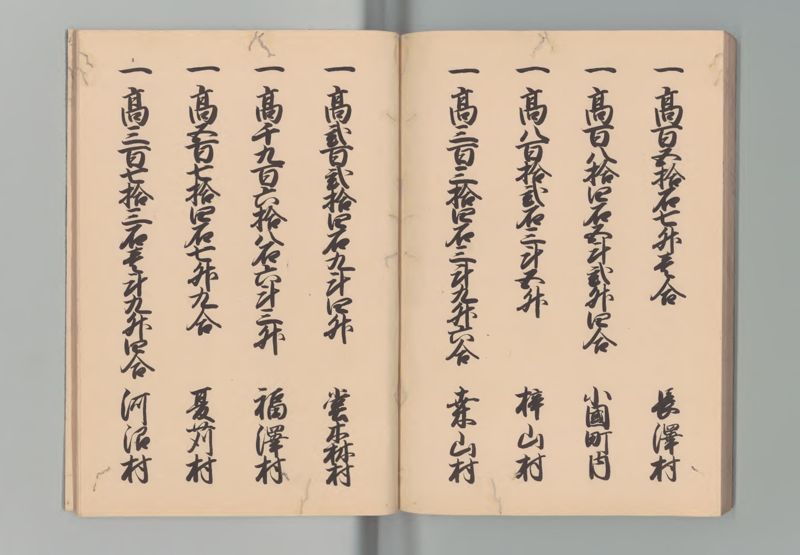 一高百五拾石七升壱合 長澤村
一高百八拾四石五斗弐升四合 小國町内
一高八百拾弐石三斗五升 梓山村
一高三百三拾四石三斗九升六合 桑山村
一高弐百弐拾四石九斗四升 木林村
一高千九百六拾八石六斗三升 福澤村
一高五百七拾四石七升九合 夏苅村
一高三百七拾三石壱斗九升四合 河沼村